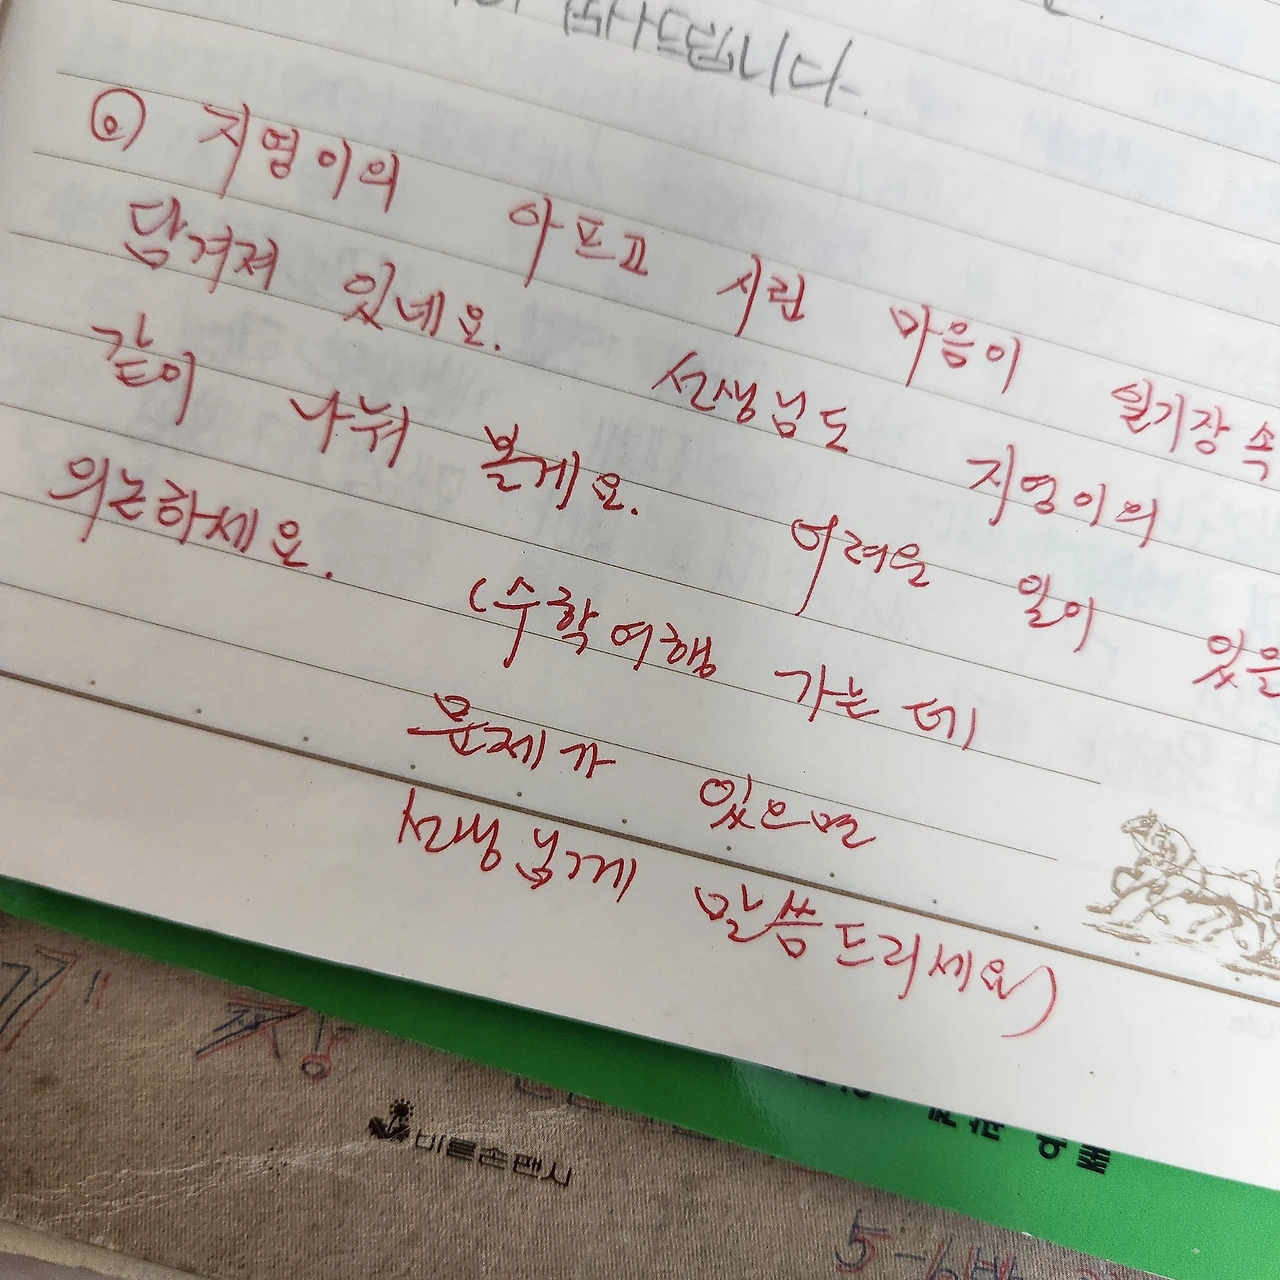 드립니다.
지영이의 아프고 시린 마음이 일기장 속
담겨져 있네요. 선생님도 지영이의
같이 나눠 볼게요. 어려운 일이 있을
의논하세요. (수학여행 가는데
문제가 있으면
선생님께 말씀드리세요)
바른손팬시
5-6반